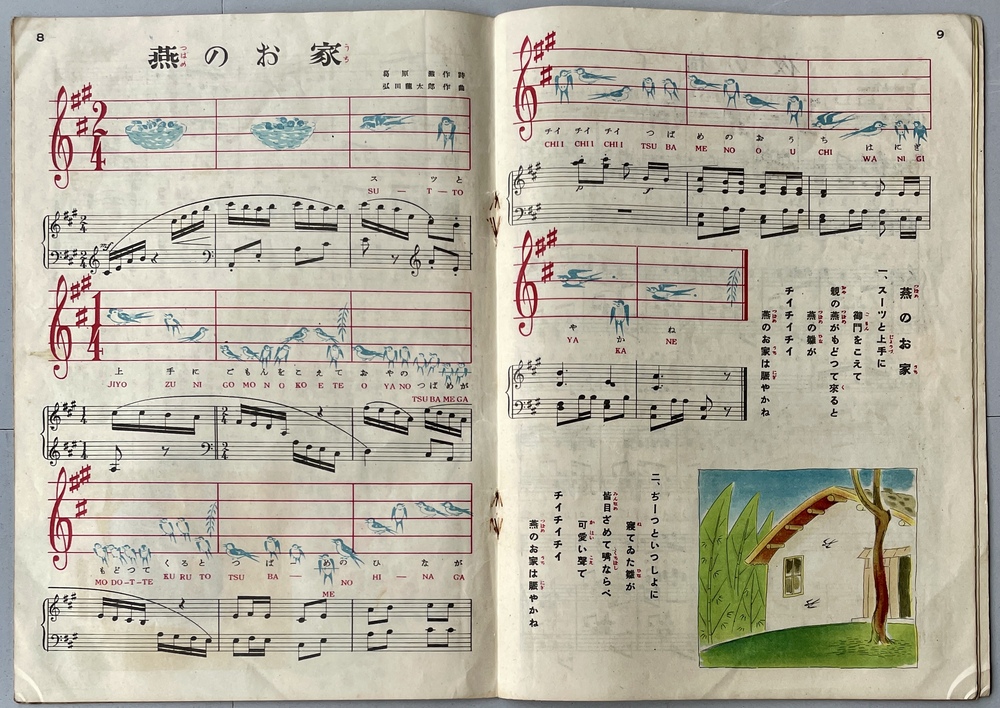 8
燕のお家
つばめ うち
葛原 䔥作詩
弘田龍太郎作曲
2
4
スツと
SU — T — TO
2
4
1
4
上手にごもんをこえておやのつばめが
JIYO ZU NI GO MO N O KO E TE O YA NO TSU BA ME GA
もどつてくるとつばめのひなが
MO DO–T–TE KU RU TO TSU BA — ME NO HI — NA GA
9
チイ チイ チイ つばめのおうちはにぎ
CHII CHII CHII TSU BA ME NO O U CHI WA NI GI
やかね
YA KA NE
燕のお家
一、スーツと上手に
御門をこえて
親の燕がもどつて來ると
燕の雛が
チイチイチイ
燕のお家は賑やかね
二、ぢーつといつしよに
寢てゐた雛が
皆目ざめて嘴ならべ
可愛い聲で
チイチイチイ
燕のお家は賑やかね